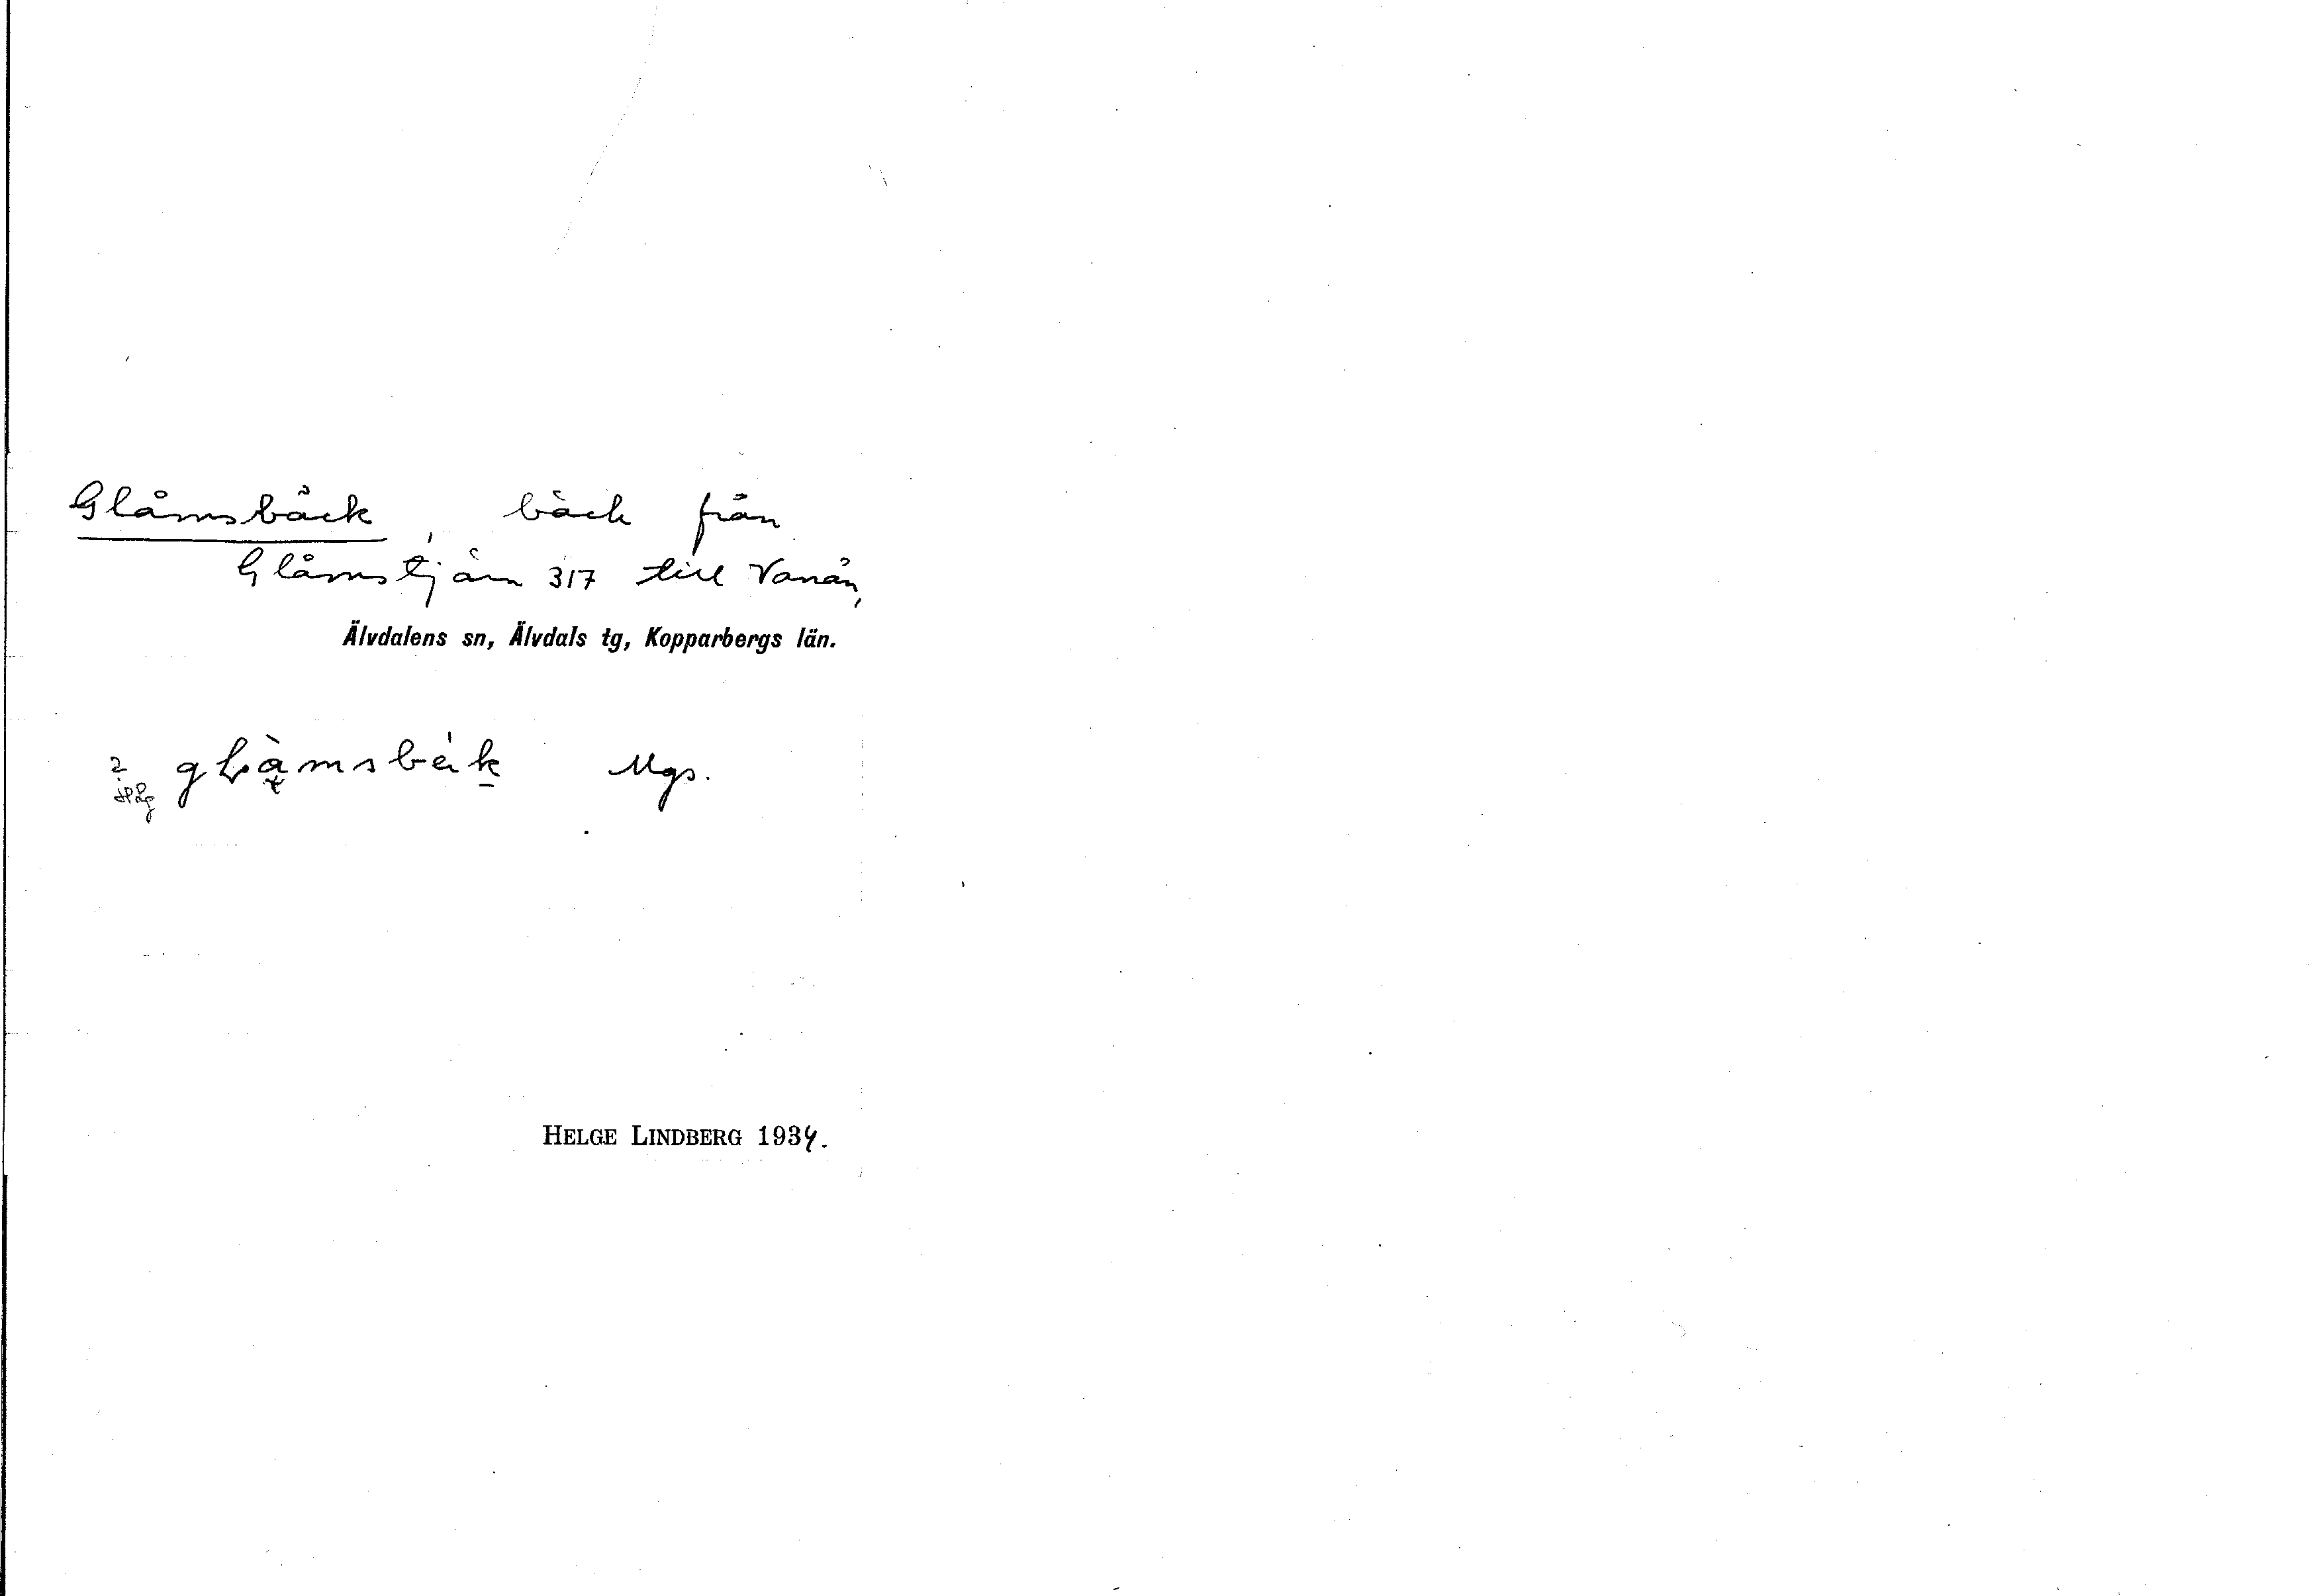 Glåmsbäck, bäck från
Glåmstjärn 317 till Vanån,
Älvdalens sn, Älvdals tg, Kopparbergs län.
Mgs.
HELGE LINDBERG 1934.